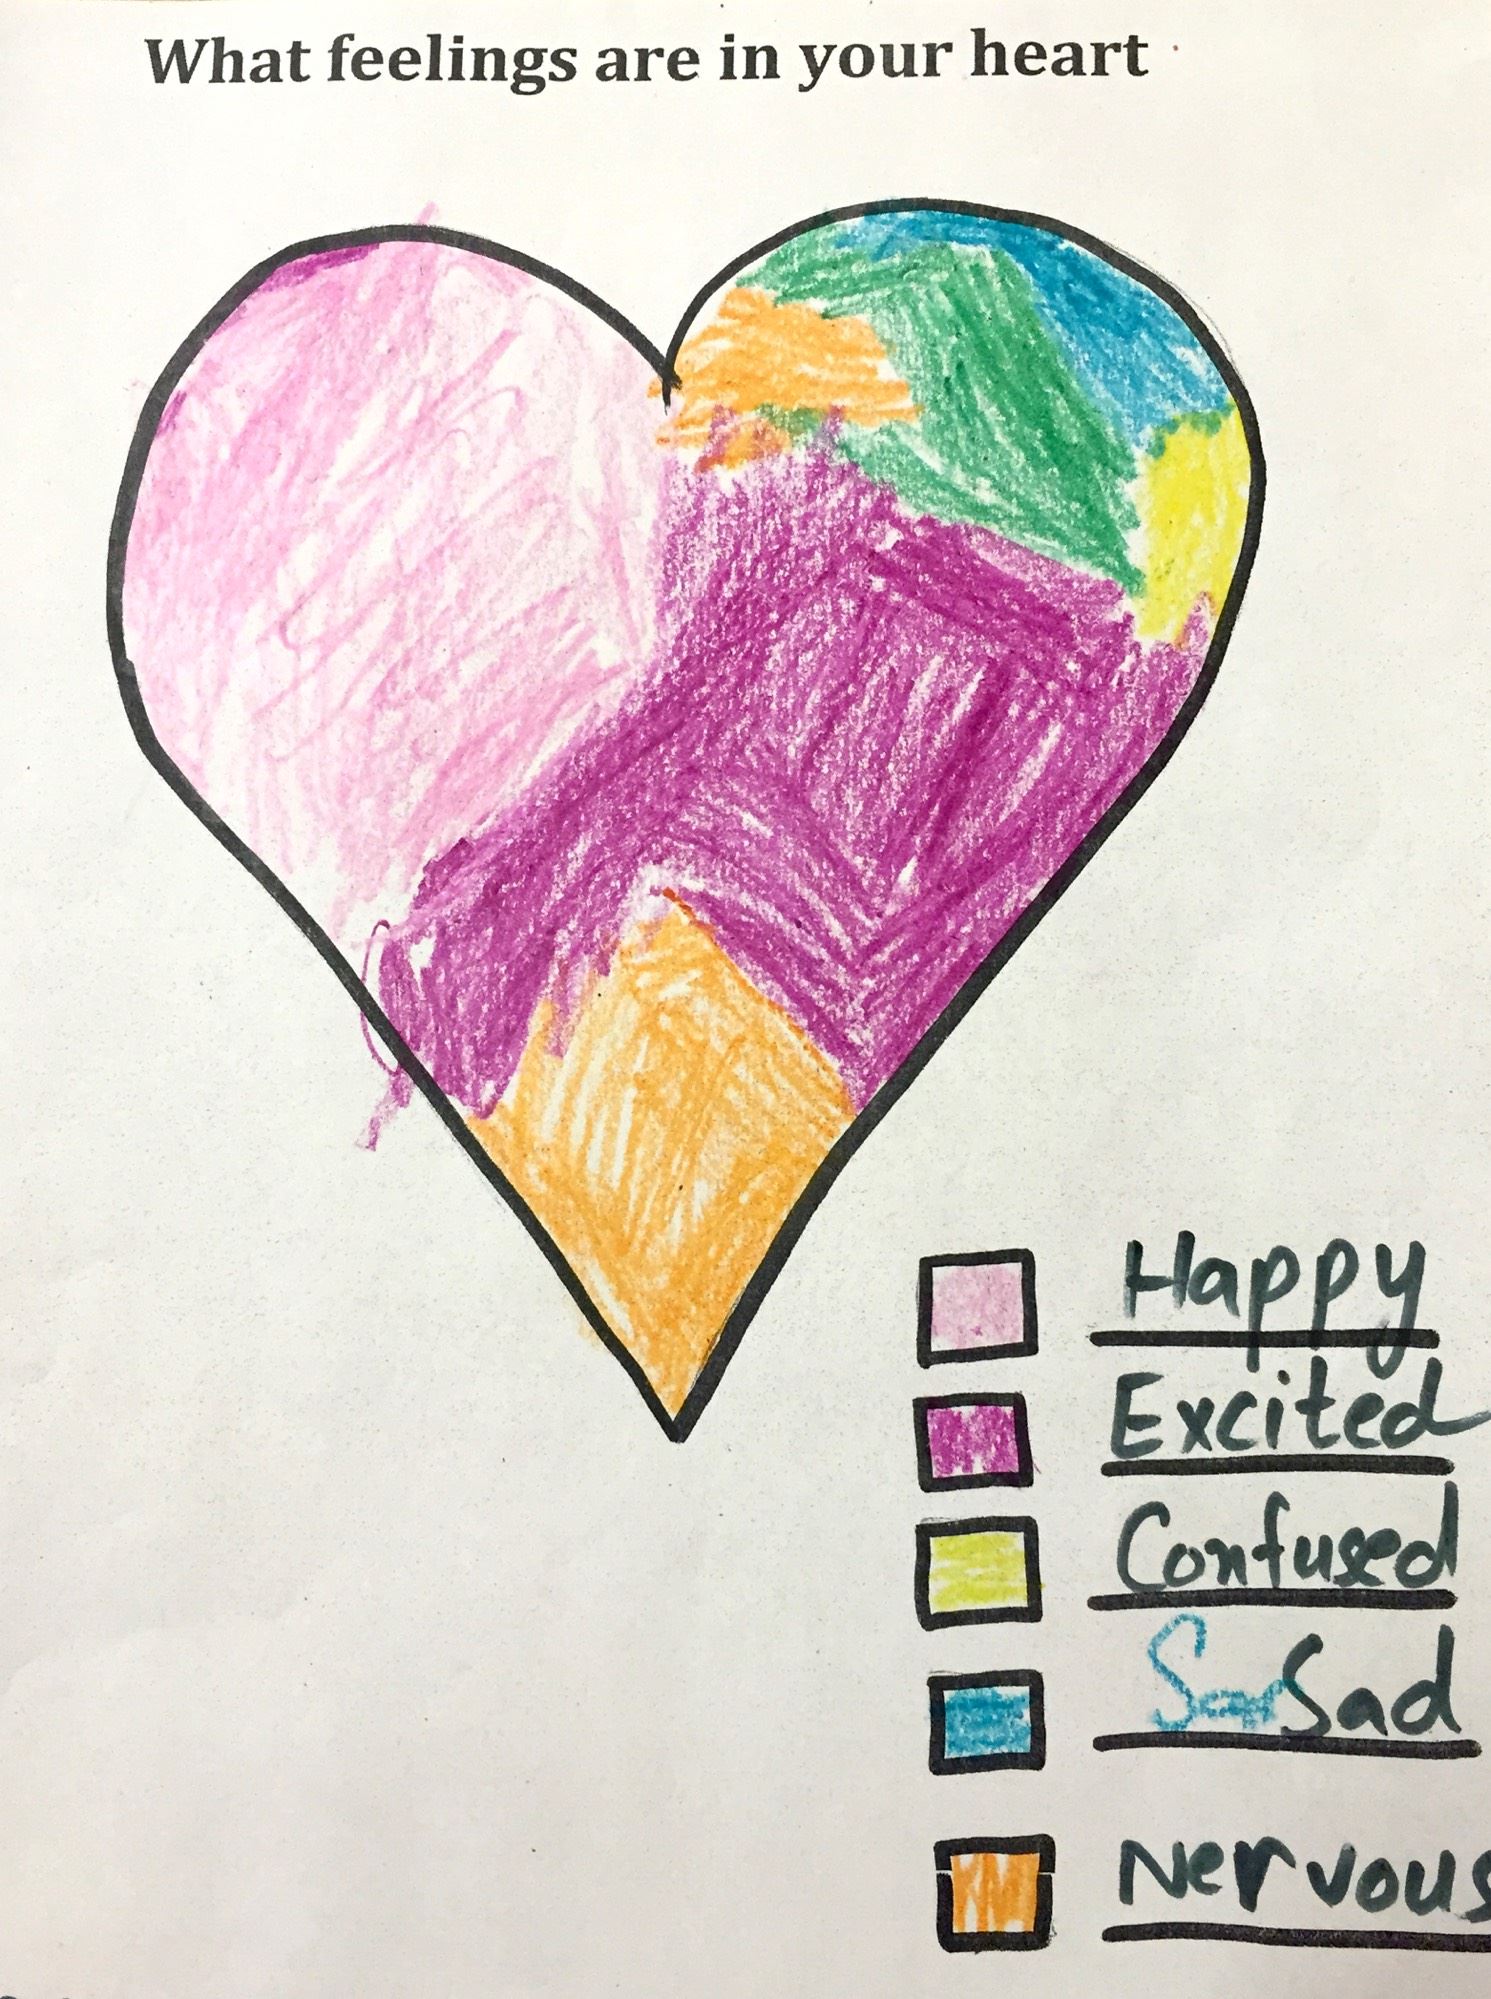 What feelings are in your heart
Happy
Excited
Confused
Sad
Nervous